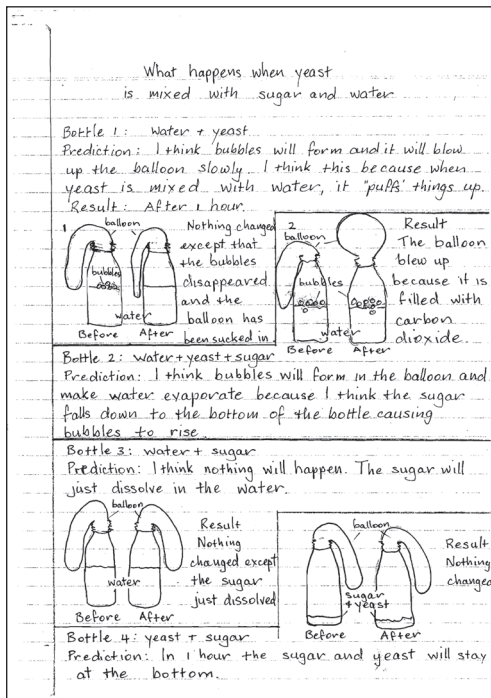 What happens when yeast
is mixed with sugar and water
Bottle 1: Water + yeast
Prediction: I think bubbles will form and it will blow
up the balloon slowly. I think this because when
yeast is mixed with water, it "puffs" things up.
Result: After 1 hour.
1
balloon
bubbles
water
Before After
Nothing changed
except that
the bubbles
disappeared
and the
balloon has
been sucked in
2
balloon
bubbles
water
Before After
Result
The balloon
blew up
because it is
filled with
carbon
dioxide.
Bottle 2: water + yeast + sugar
Prediction: I think bubbles will form in the balloon and
make water evaporate because I think the sugar
falls down to the bottom of the bottle causing
bubbles to rise.
Bottle 3: water + sugar
Prediction: I think nothing will happen. The sugar will
just dissolve in the water.
balloon
water
Before After
Result
Nothing
changed except
the sugar
just dissolved
balloon
sugar
+ yeast
Before After
Result
Nothing
changed
Bottle 4: yeast + sugar
Prediction: In 1 hour the sugar and yeast will stay
at the bottom.